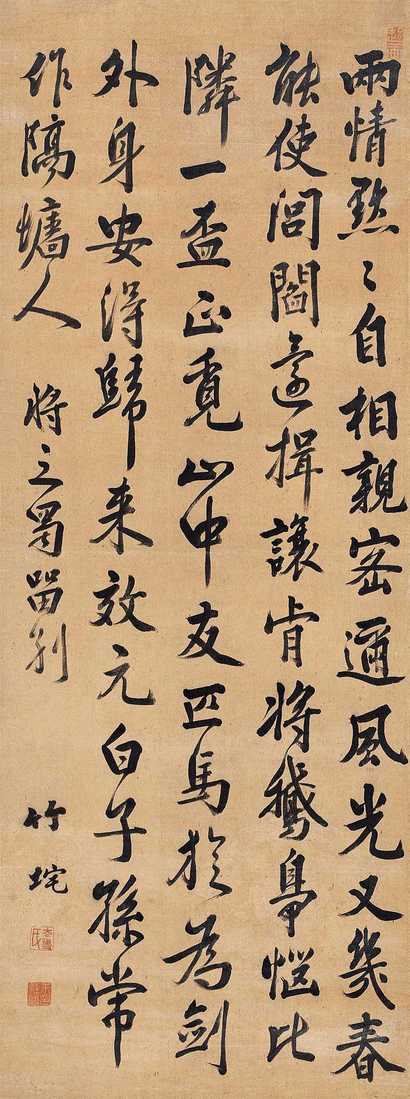 兩情默〻自相親密邇風光又幾春
能使閭閻還揖讓肯將鵝鴨惱比
隣一盃正覓山中友匹馬旋為劍
外身安得歸来效元白子孫常
作隔墻人 將之蜀留別
竹垞